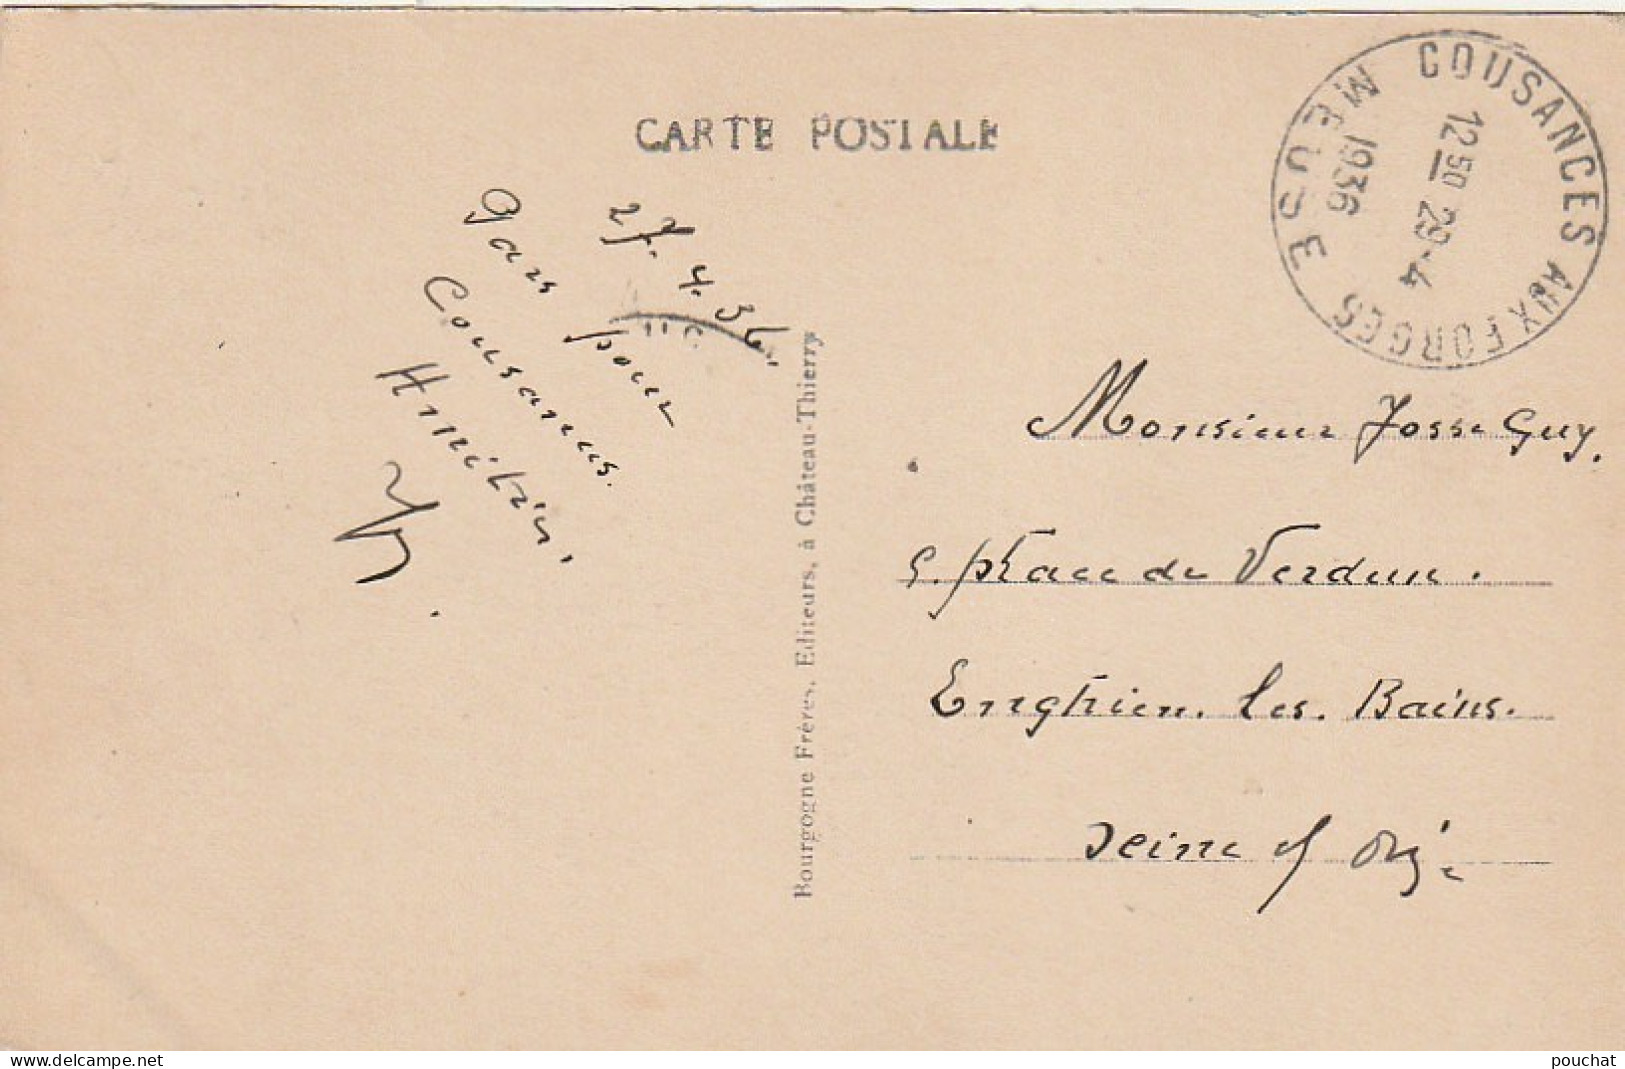 CARTE POSTALE
COUSANCES AUX FORGES
MEUSE
12 50 29-4
1936
27.4.36.
Gare pour
Cousances.
Amitiés.
Bourgogne Frères, Editeurs, à Château-Thierry
Monsieur Josse Guy.
5. place de Verdun.
Enghien. les. Bains.
Seine et
www.delcampe.net
pouchat